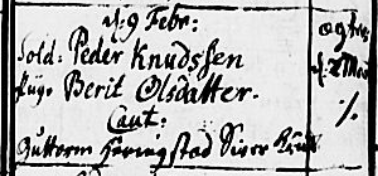 d: 9 Febr:
Sold: Peder Knudssen
Pige Berit Olsdatter.
Caut:
Guttorm Heringstad Siver